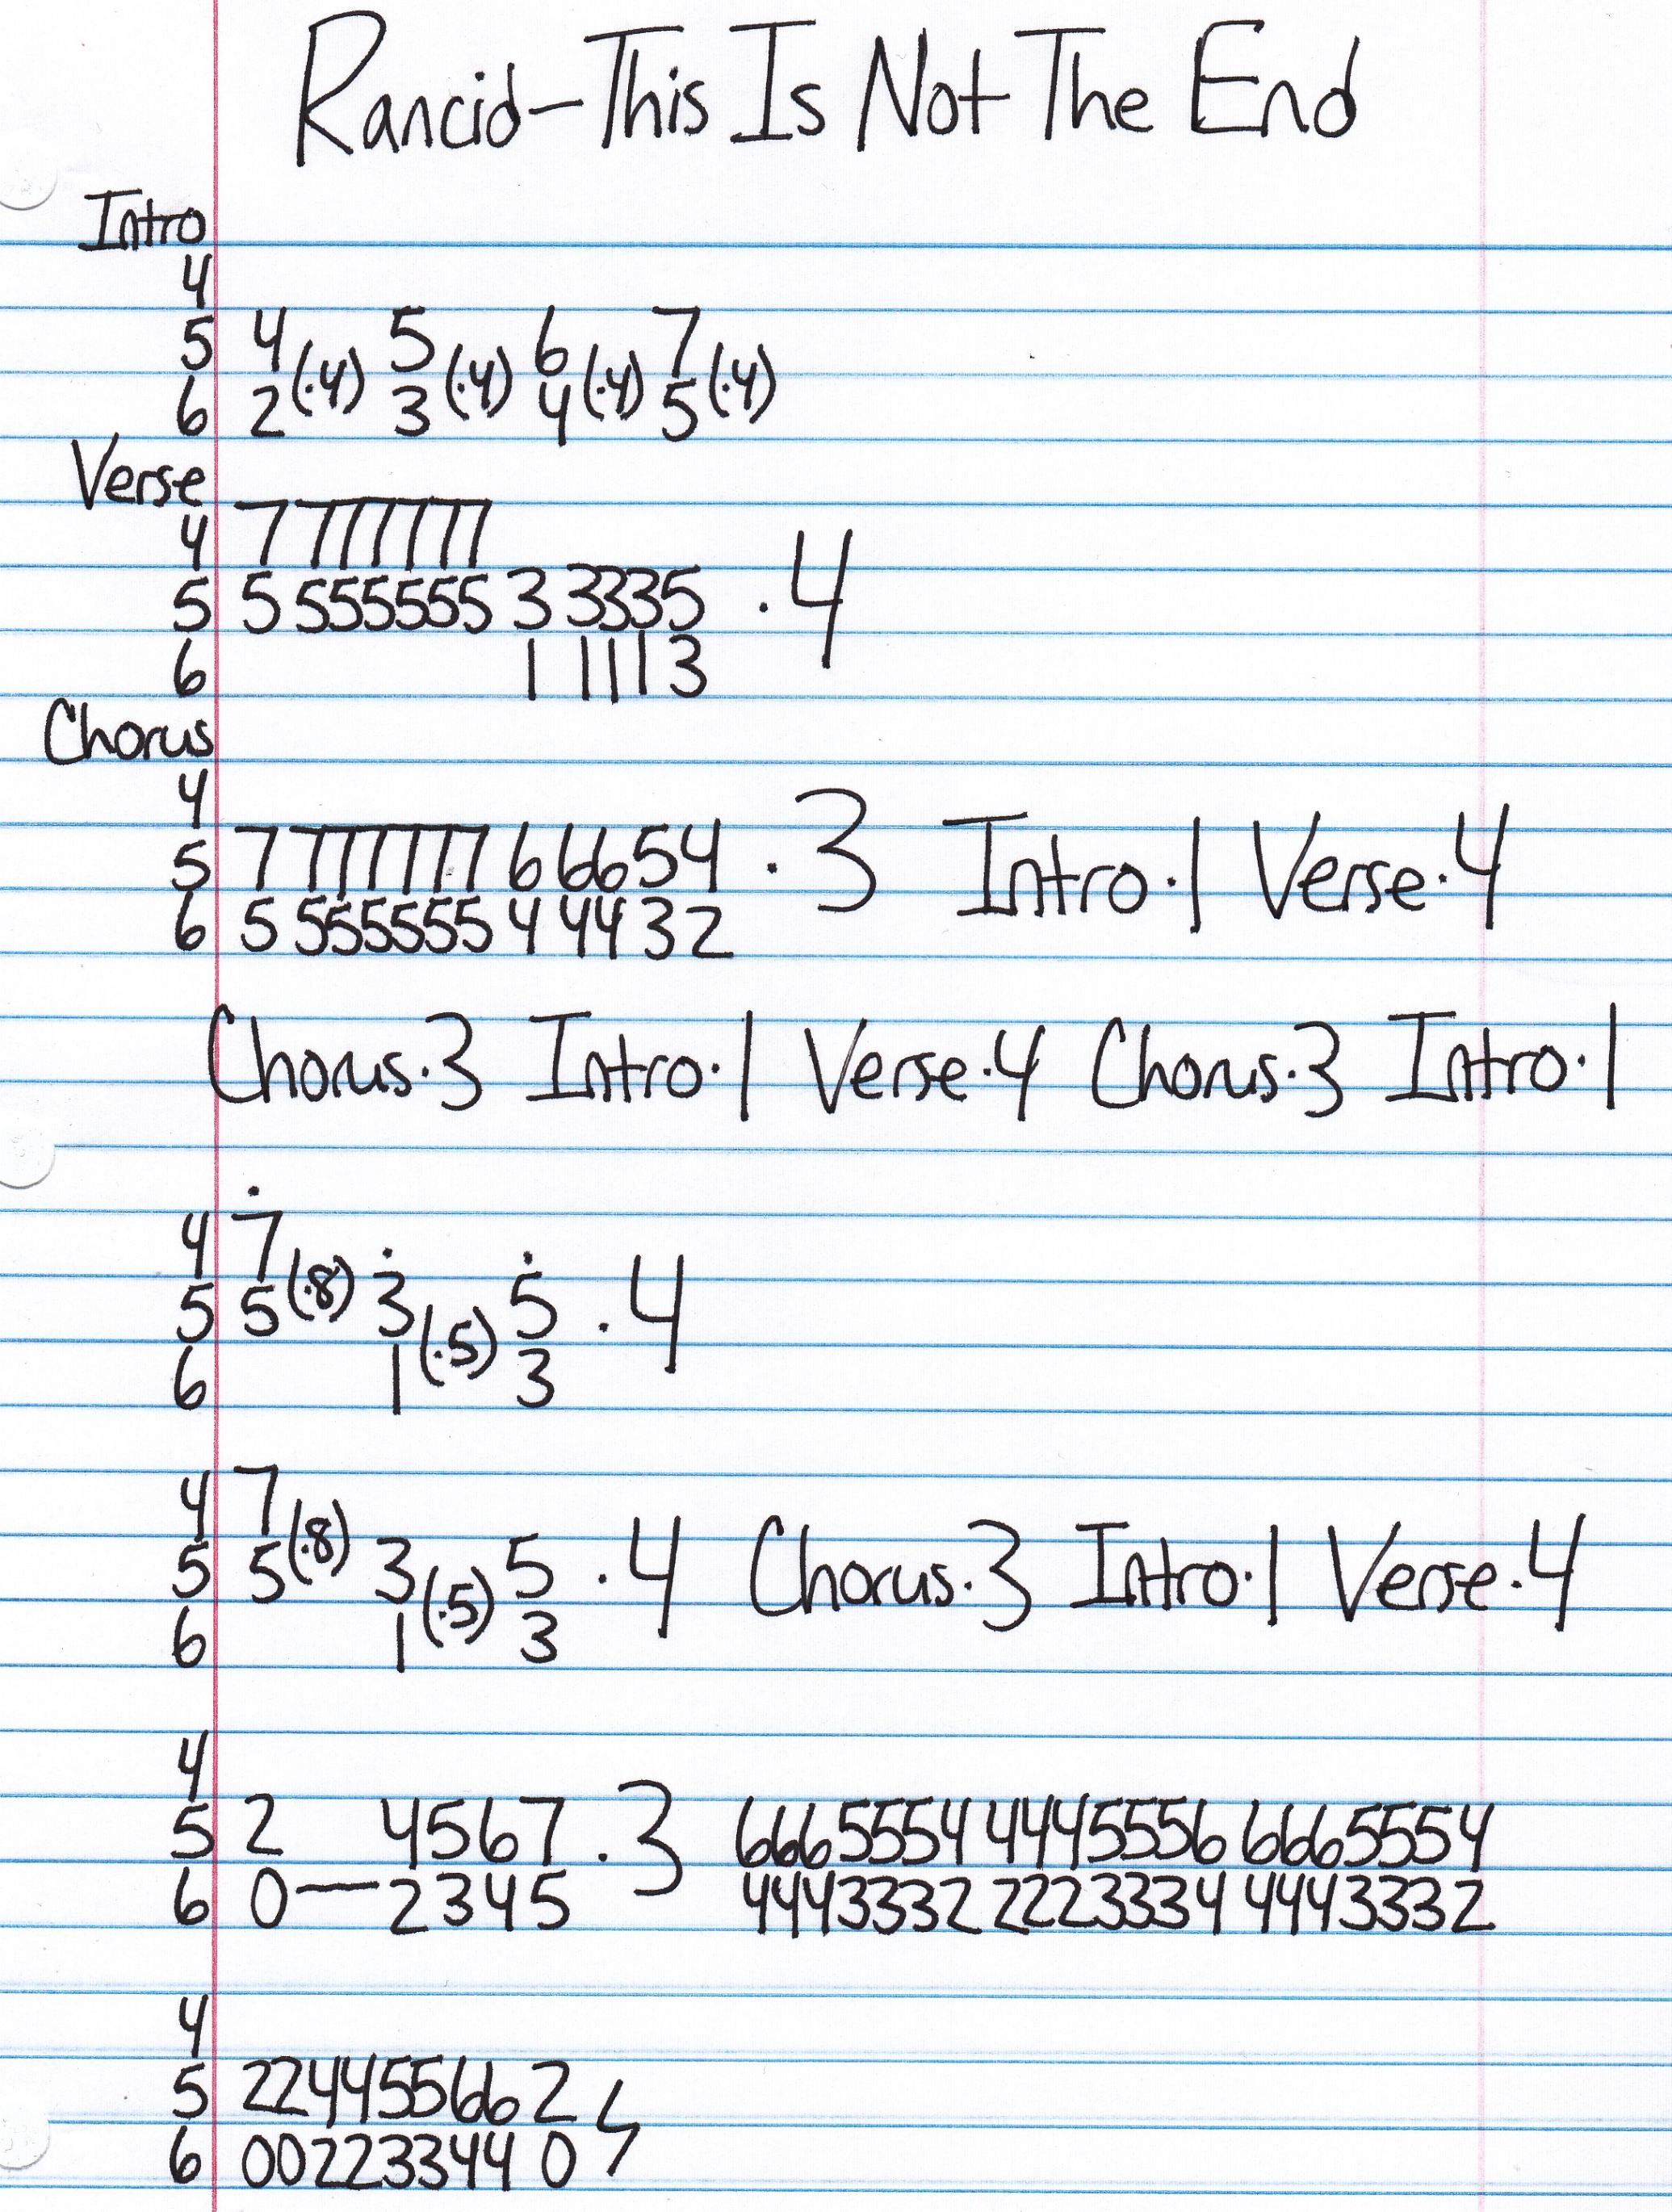 Rancid-This Is Not The End
Intro
4
5 4 5 6 7
6 2(·4) 3(·4) 4(·4) 5(·4)
Verse
4 7 777777
5 5 555555 3 3335 ·4
6 1 1113
Chorus
4
5 7 777777 6 66654 ·3 Intro·1 Verse·4
6 5 555555 4 4432
Chorus·3 Intro·1 Verse·4 Chorus·3 Intro·1
4 7
5 5(·8) 3 5 ·4
6 1(·5) 3
4 7
5 5(·8) 3 5 ·4 Chorus·3 Intro·1 Verse·4
6 1(·5) 3
4
5 2 4567 ·3 6665554 4445556 6665554
6 0—2345 4443332 2223334 4443332
4
5 22445566 2
6 00223344 0